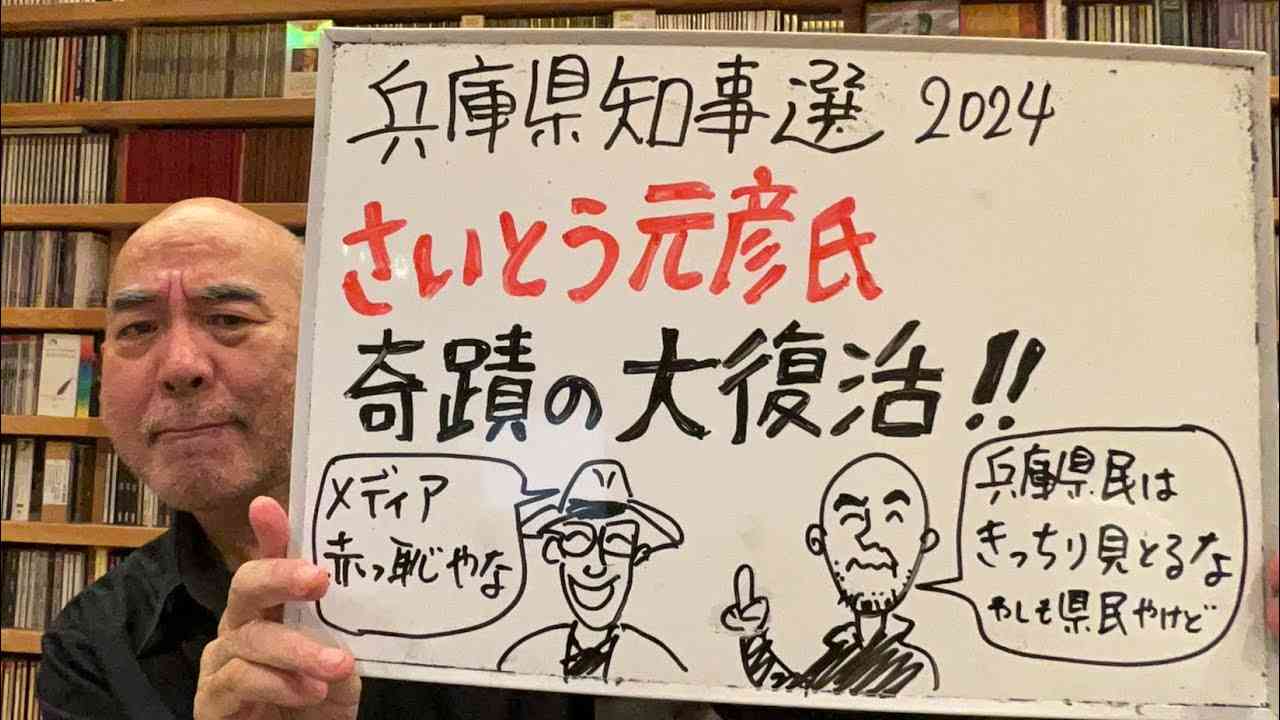 兵庫県知事選 2024
さいとう元彦氏
奇蹟の大復活!!
メディア
赤っ恥やな
兵庫県民は
きっちり見とるな
やしも県民やけど